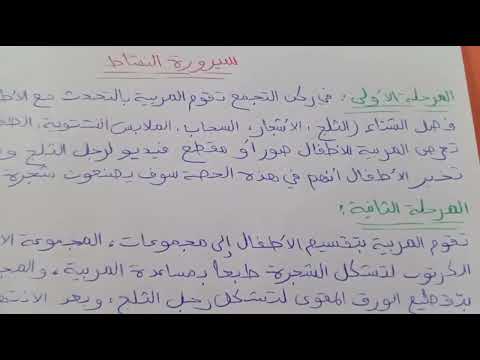 سيرورة النشاط
المرحلة الأولى: في ركن التجمع تقوم المربية بالتحدث مع
فصل الشتاء (الثلج، الأشجار، السحاب، الملابس الشتوية،
تعرض المربية للأطفال صورا أو مقطع فيديو لرجل الثلج و
تخبر الأطفال أنهم في هذه الحصة سوف يصنعون شجرة
المرحلة الثانية:
تقوم المربية بتقسيم الأطفال إلى مجموعات، المجموعة
الكرتون لتشكل الشجرة طبعا بمساعدة المربية،
بتقطيع الورق المقوى لتشكل رجل الثلج، وبعد